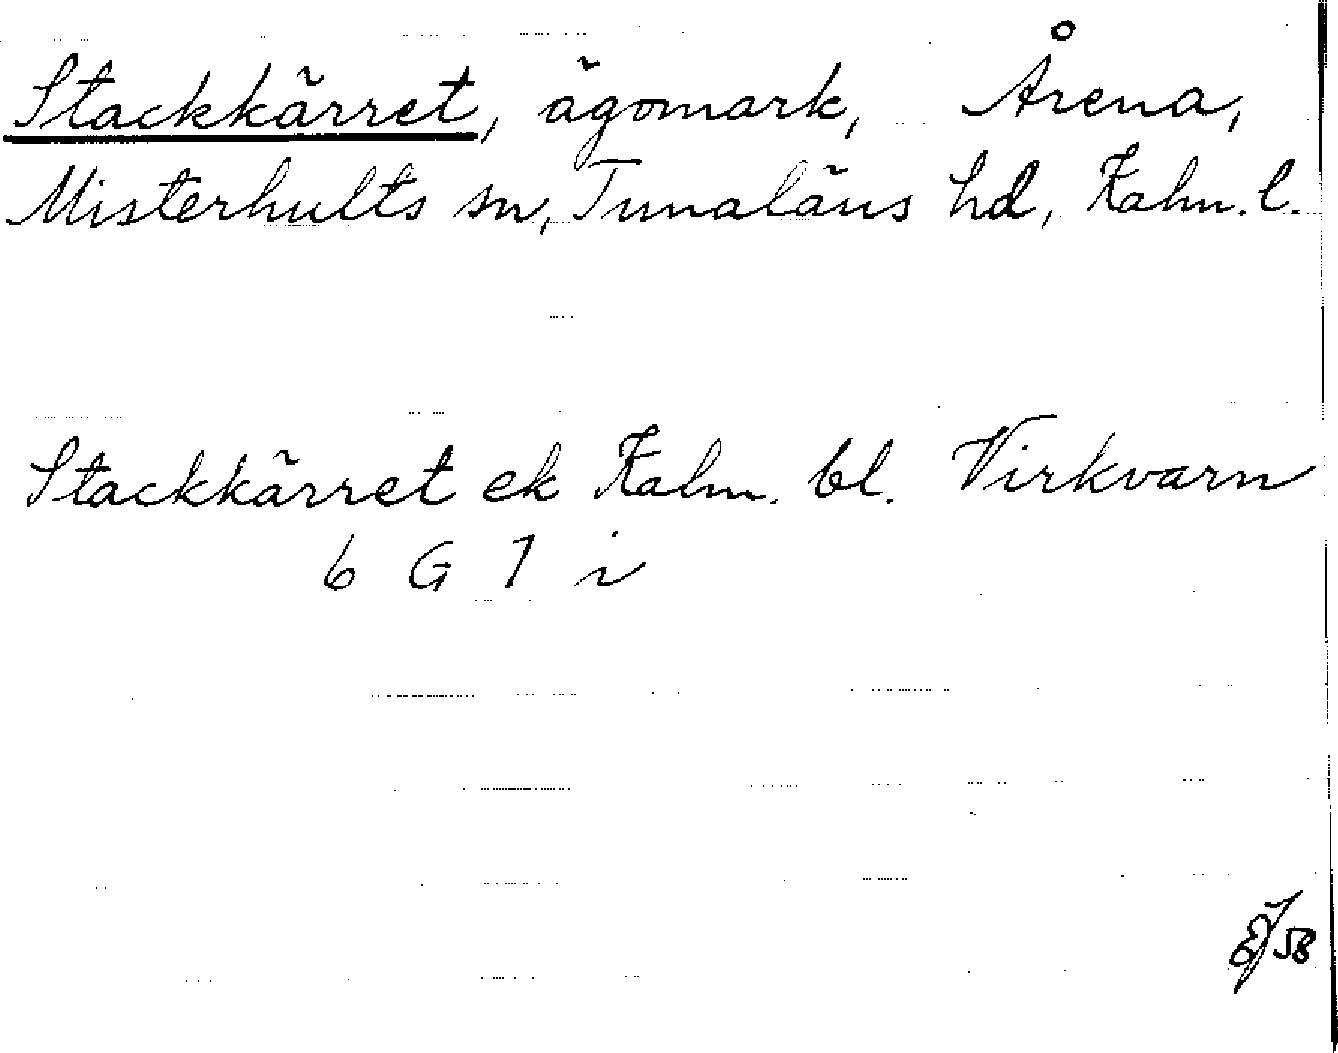 Stackkärret, ägomark, Årena,
Misterhults sn, Tunaläns hd, Kalm. l.
Stackkärret ek Kalm. bl. Virkvarn
6 G 7 i